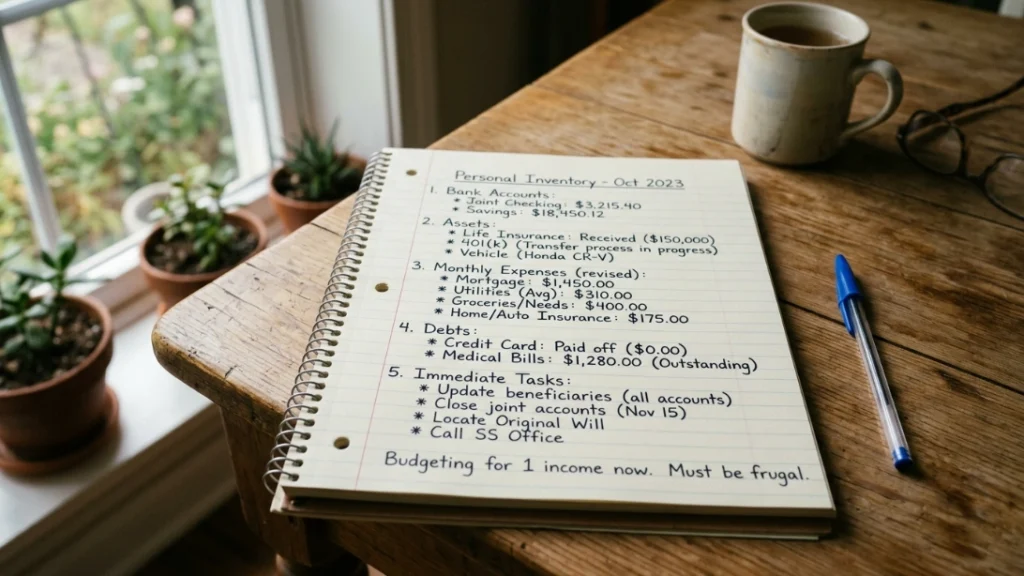 Personal Inventory - Oct 2023
1. Bank Accounts:
* Joint Checking: $3,215.40
* Savings: $18,450.12
2. Assets:
* Life Insurance: Received ($150,000)
* 401(k) (Transfer process in progress)
* Vehicle (Honda CR-V)
3. Monthly Expenses (revised):
* Mortgage: $1,450.00
* Utilities (Avg): $310.00
* Groceries/Needs: $400.00
* Home/Auto Insurance: $175.00
4. Debts:
* Credit Card: Paid off ($0.00)
* Medical Bills: $1,280.00 (Outstanding)
5. Immediate Tasks:
* Update beneficiaries (all accounts)
* Close joint accounts (Nov 15)
* Locate Original Will
* Call SS Office
Budgeting for 1 income now. Must be frugal.